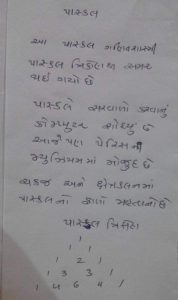 પાસ્કલ
આ પાસ્કલ ગણિતશાસ્ત્રી
પાસ્કલ ત્રિકોણથી અમર
થઈ ગયો છે
પાસ્કલે સરવાળો કરવાનું
કોમ્પ્યુટર શોધ્યું છે
આજે પણ પેરિસની
મ્યુઝિયમમાં મોજુદ છે
અને ક્ષેત્રકલનમાં
પાસ્કલનો ફાળો મહત્વનો છે
પાસ્કલ ત્રિકોણ
1
1 1
1 2 1
1 3 3 1
1 4 6 4 1